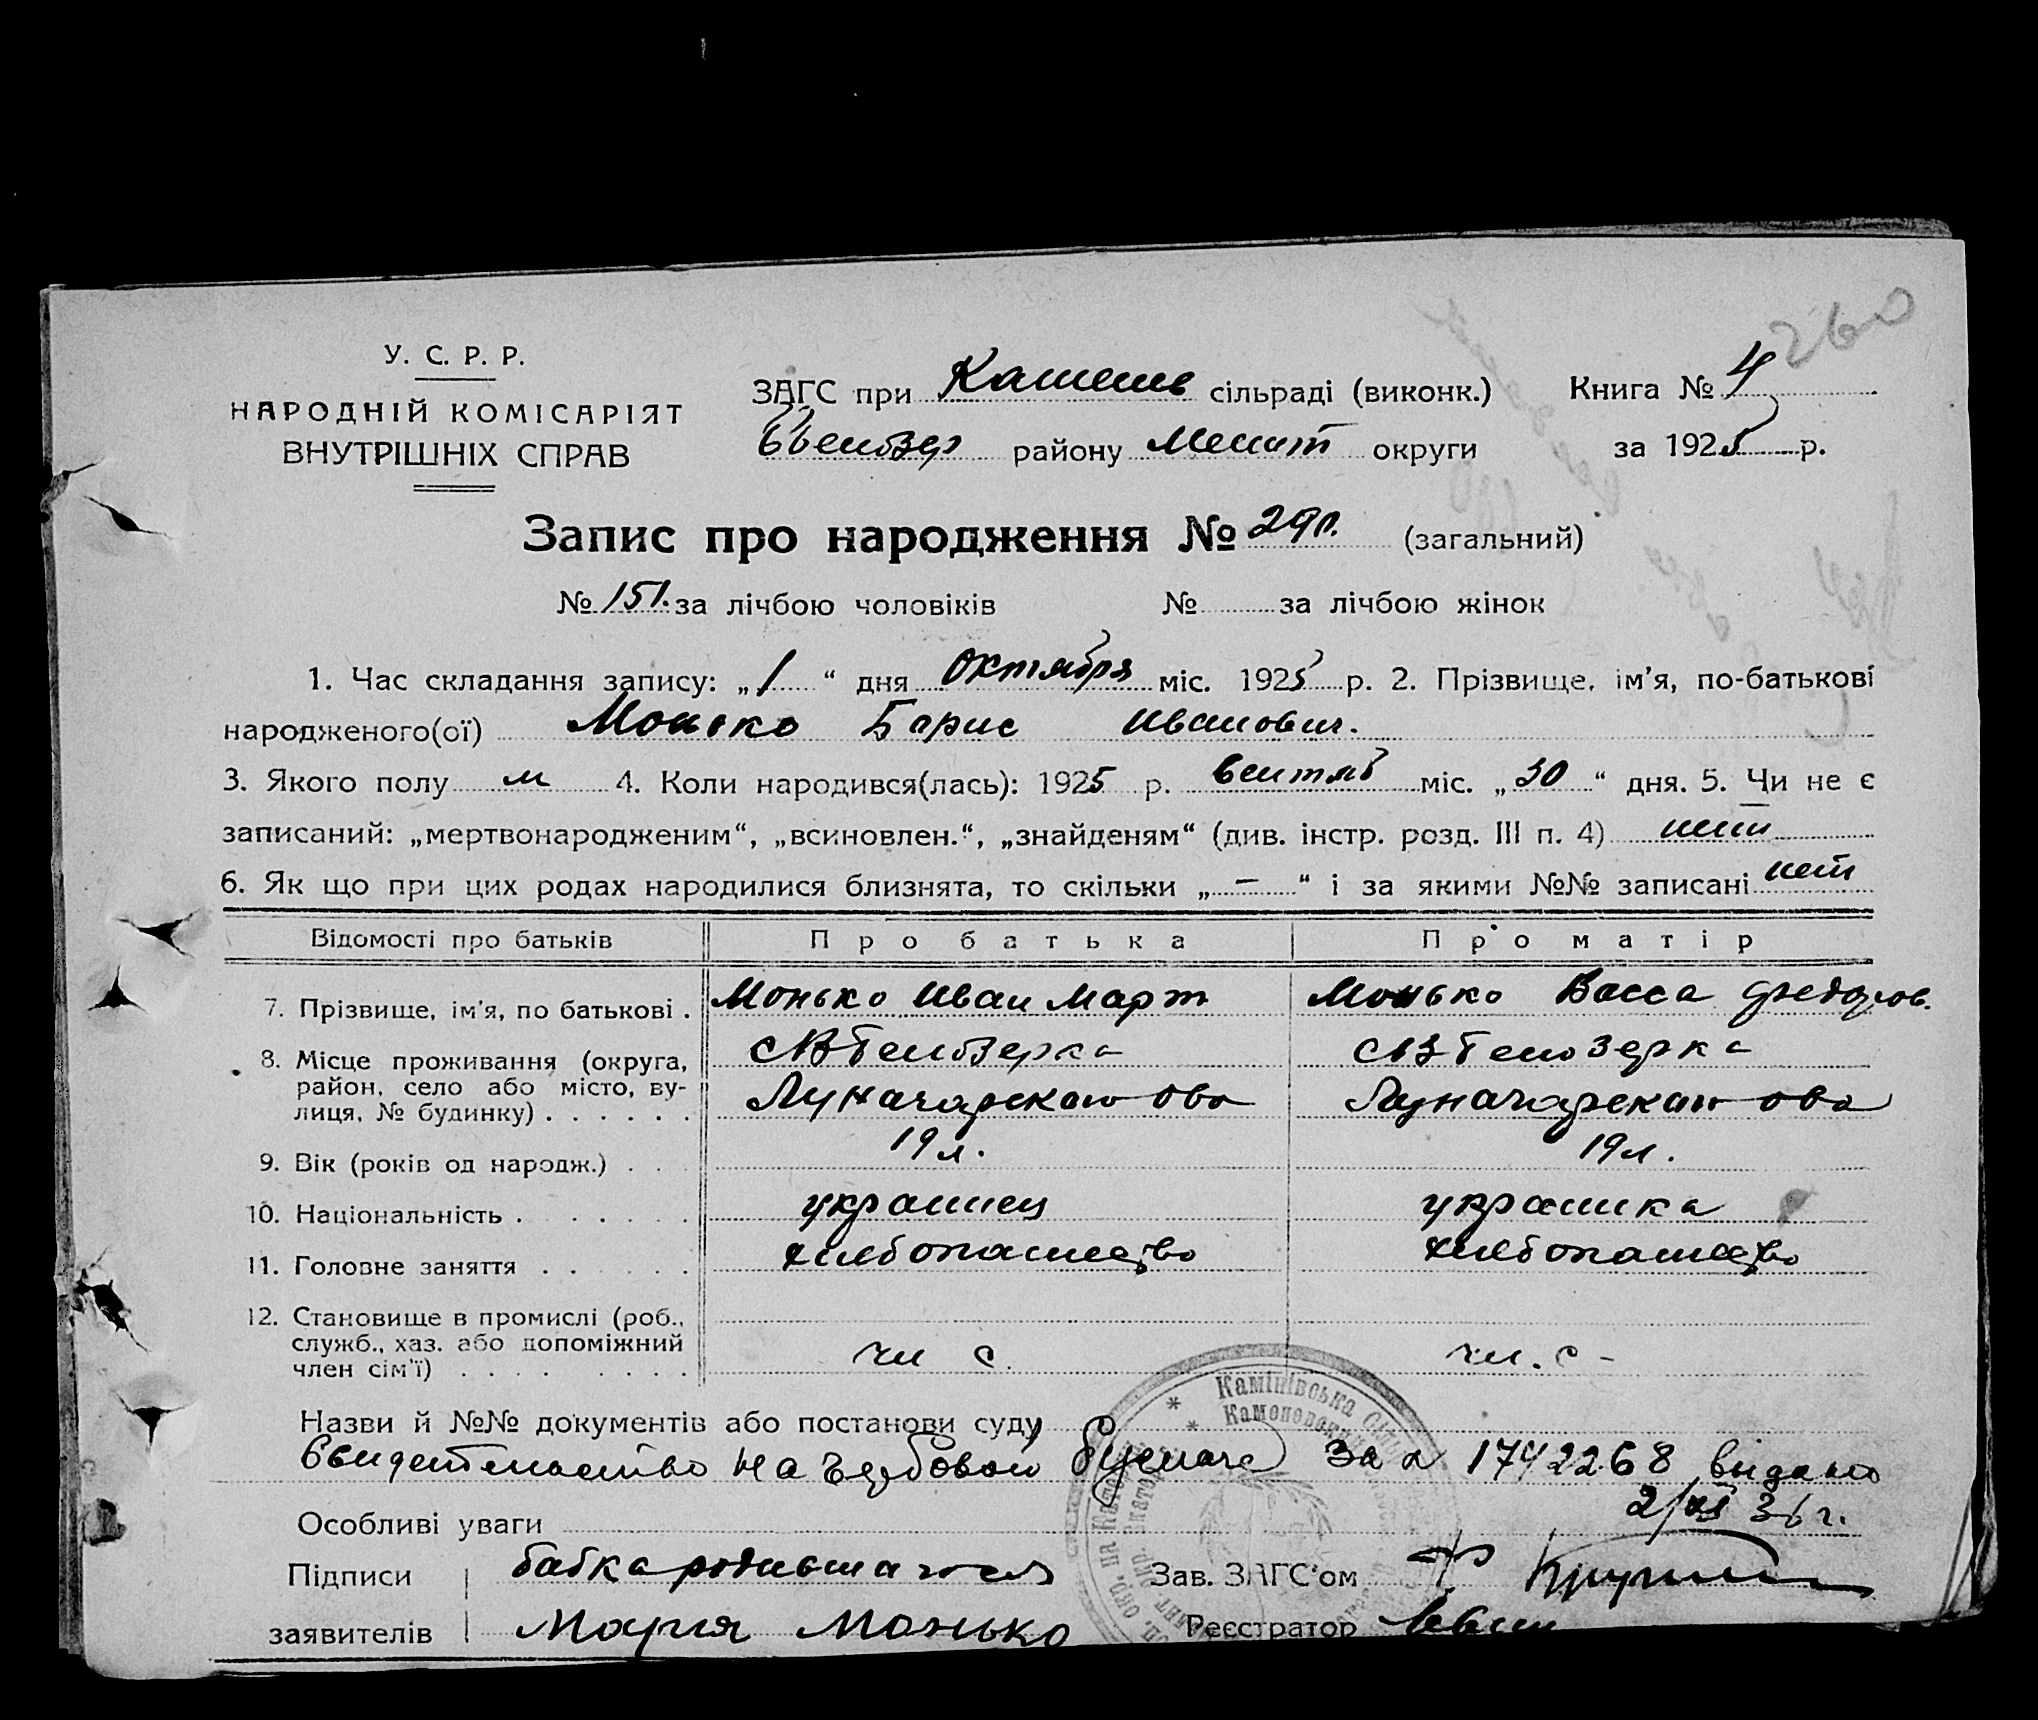 260
У. С. Р. Р.
НАРОДНІЙ КОМІСАРІЯТ
ВНУТРІШНІХ СПРАВ
ЗАГС при сільраді (виконк.)
району Мелит округи
Книга № 4
за 1925 р.
Запис про народження № 29 (загальний)
№ 151. за лічбою чоловіків № за лічбою жінок
1. Час складання запису: „1“ дня Октября міс. 1925 р. 2. Прізвище, ім'я, по-батькові
народженого(ої) Монько Борис Иванович.
3. Якого полу м 4. Коли народився(лась): 1925 р. Сентяб міс. „30“ дня. 5. Чи не є
записаний: „мертвонародженим“, „всиновлен.“, „знайденям“ (див. інстр. розд. III п. 4) нет
6. Як що при цих родах народилися близнята, то скільки „—“ і за якими №№ записані нет
Відомості про батьків Про батька Про матір
7. Прізвище, ім'я, по батькові . Монько Иван Март Монько Васса Федоров.
8. Місце проживання (округа, район, село або місто, вулиця, № будинку) . . . . . .
Белозерка
Белозерка
9. Вік (років од народж.) . . . 19 л. 19 л.
10. Національність . . . . . . . украинец украинка
11. Головне заняття . . . . . хлебопашество хлебопашество
12. Становище в промислі (роб., служб., хаз. або допоміжний член сім'ї) . . . . . . . . чл с. чл. с -
Назви й №№ документів або постанови суду
Свидетельство за № 1742268 видано
2/XI 36 г.
Особливі уваги
Підписи бабка родившагося Зав. ЗАГС'ом
заявителів Мария Монько Реєстратор
Камінівська Сіль